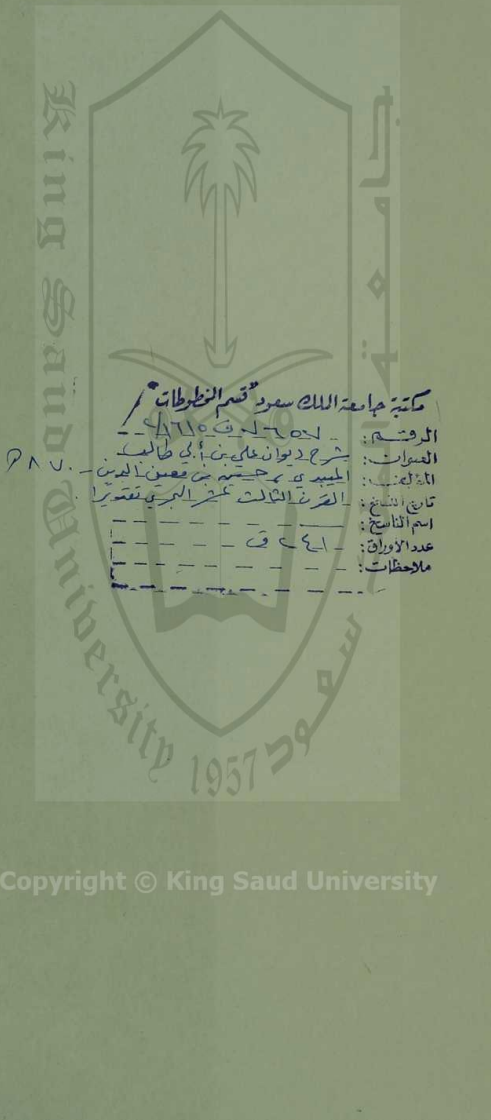 مكتبة جامعة الملك سعود "قسم المخطوطات"
الرقم: ٦٥٧
العنوان: شرح ديوان علي بن أبي طالب
المؤلف: الميبدي، حسين بن معين الدين - ٨٧٠
تاريخ النسخ: القرن الثالث عشر الهجري تقديرًا
اسم الناسخ:
عدد الأوراق: ق
ملاحظات:
جامعة الملك سعود
King Saud University
1957
Copyright © King Saud University